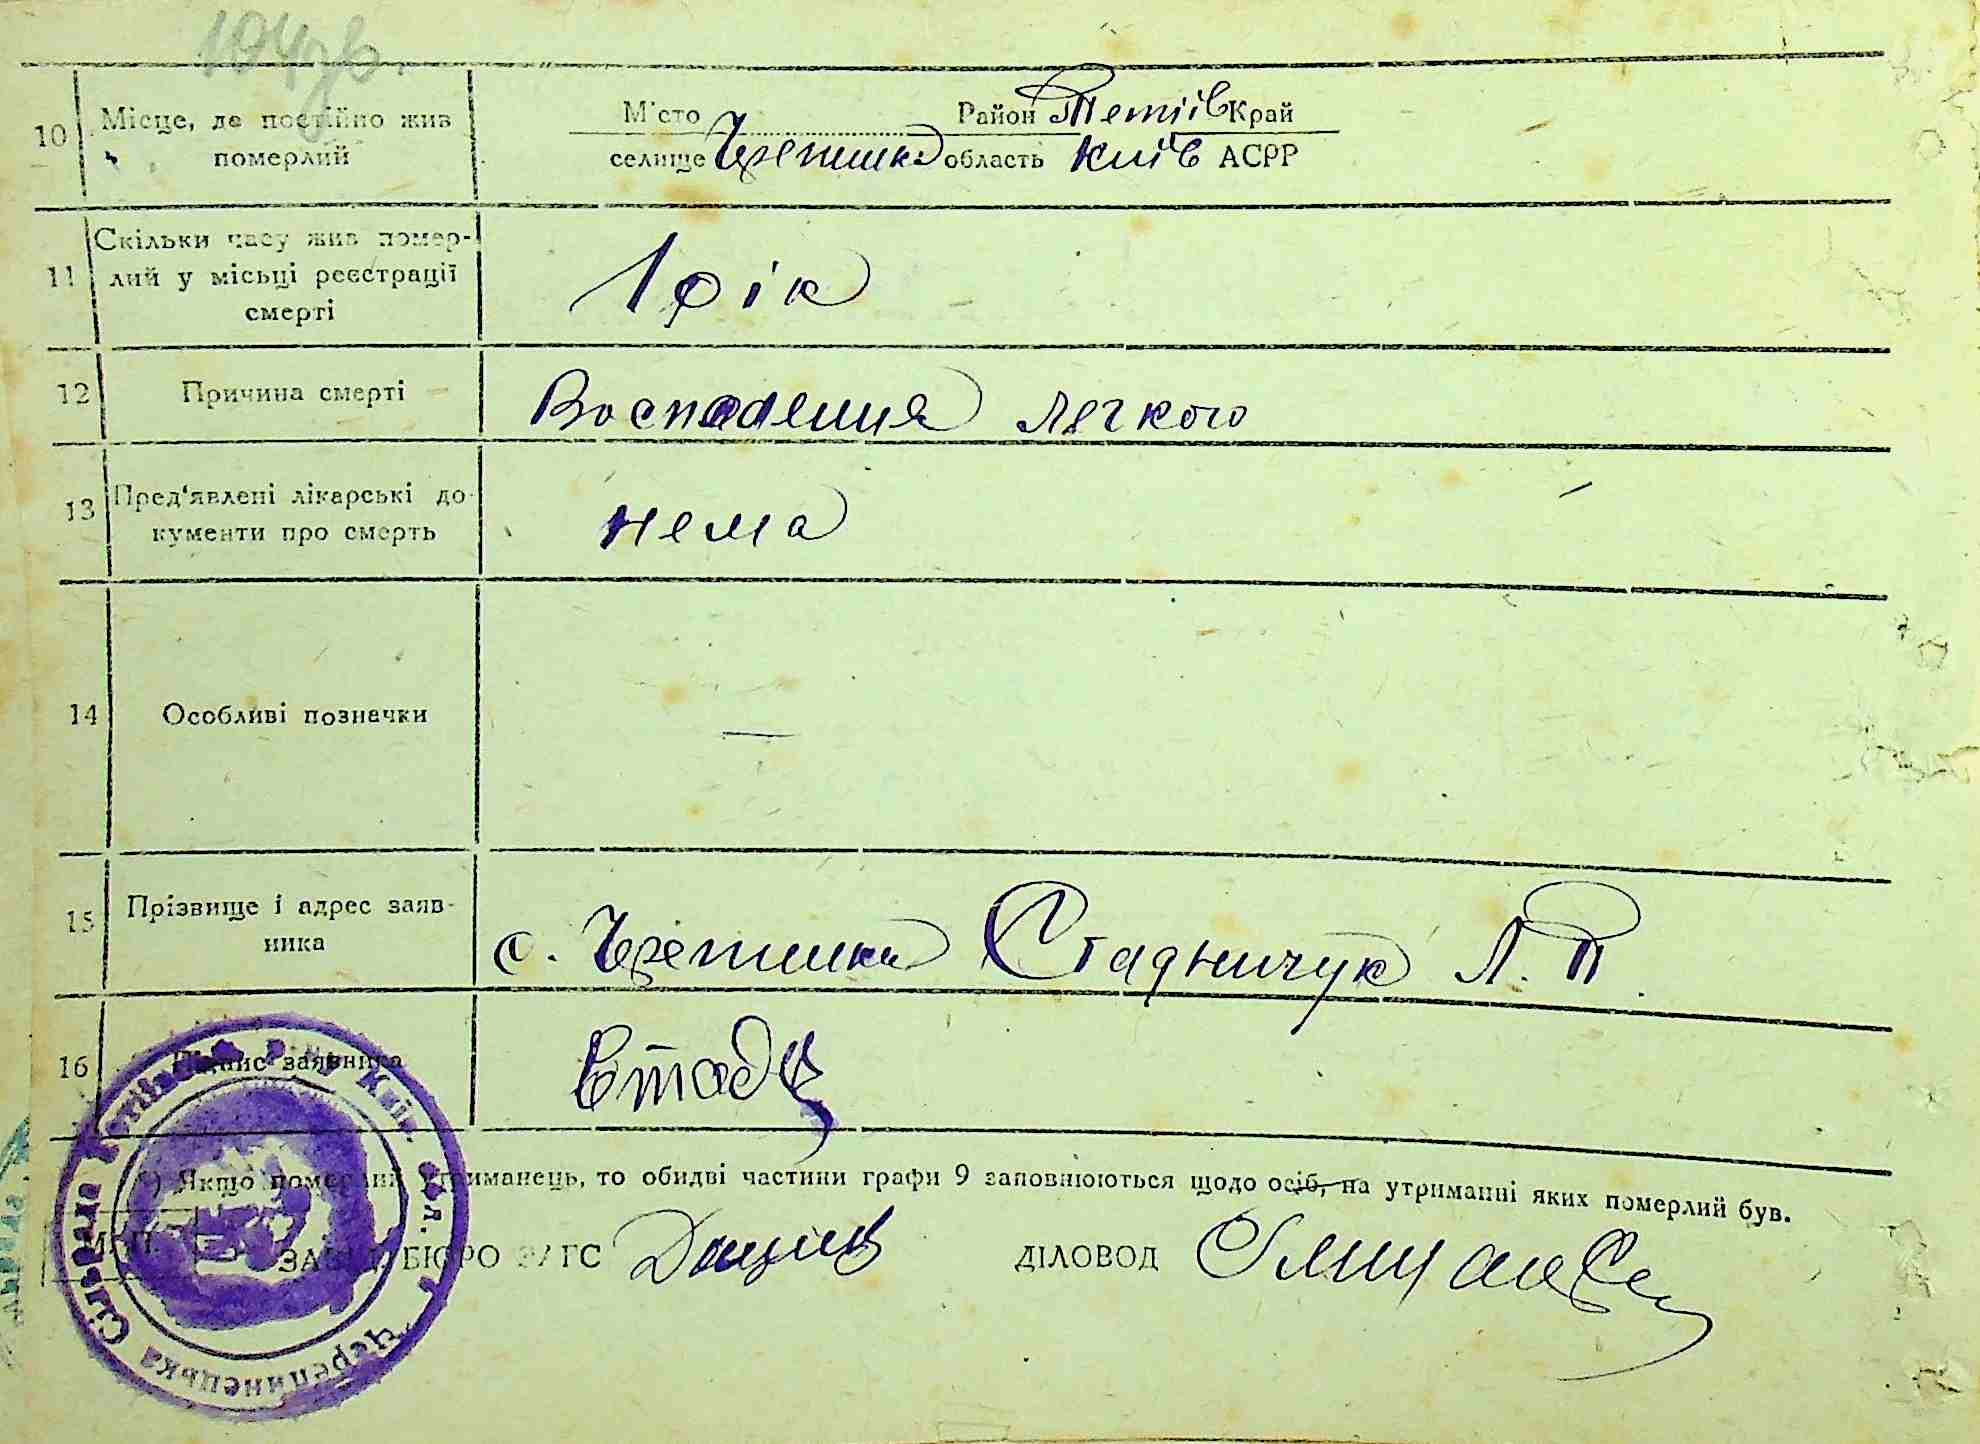 104зв.
10 Місце, де постійно жив померлий
М'сто Район Тетіїв Край
селище Черепинка область Київ АСРР
11 Скільки часу жив помер-
лий у місьці реєстрації
смерті
1 рік
12 Причина смерті
Воспаления легкого
13 Пред'явлені лікарські до-
кументи про смерть
нема
14 Особливі позначки
—
15 Прізвище і адрес заяв-
ника
с. Черепинка Стадничук Л. П.
16 Підпис заявника
Стад
*) Якщо померлий утриманець, то обидві частини графи 9 заповнюються щодо осіб, на утриманні яких померлий був.
М. П.
ЗАВ. БЮРО ЗАГС
ДІЛОВОД
Черепинецька Сільрада Тетіївськ. р-ну Київ. обл.